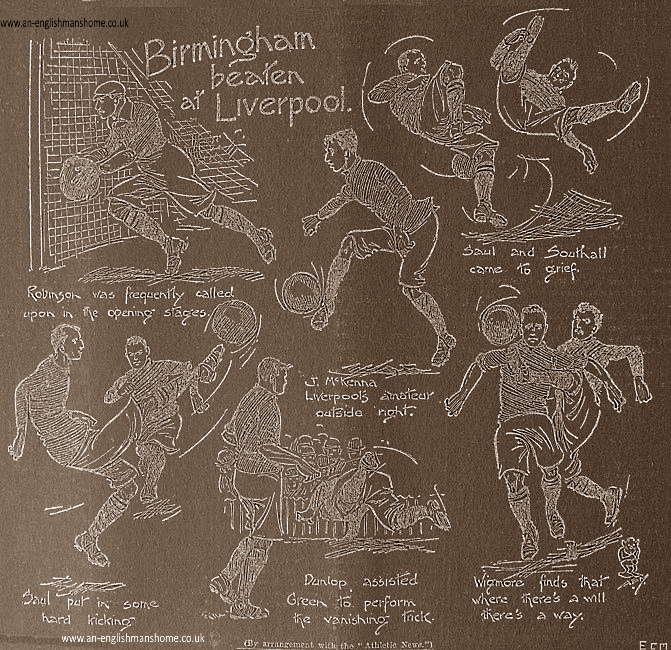 www.an-englishmanshome.co.uk
Birmingham
beaten
at Liverpool.
Saul and Southall
came to grief.
Robinson was frequently called
upon in the opening stages.
J. McKenna
Liverpool's amateur
outside right.
Saul put in some
hard kicking.
Dunlop assisted
Green to perform
the vanishing trick.
Wigmore finds that
where there's a will
there's a way.
www.an-englishmanshome.co.uk
(By arrangement with the "Athletic News.")